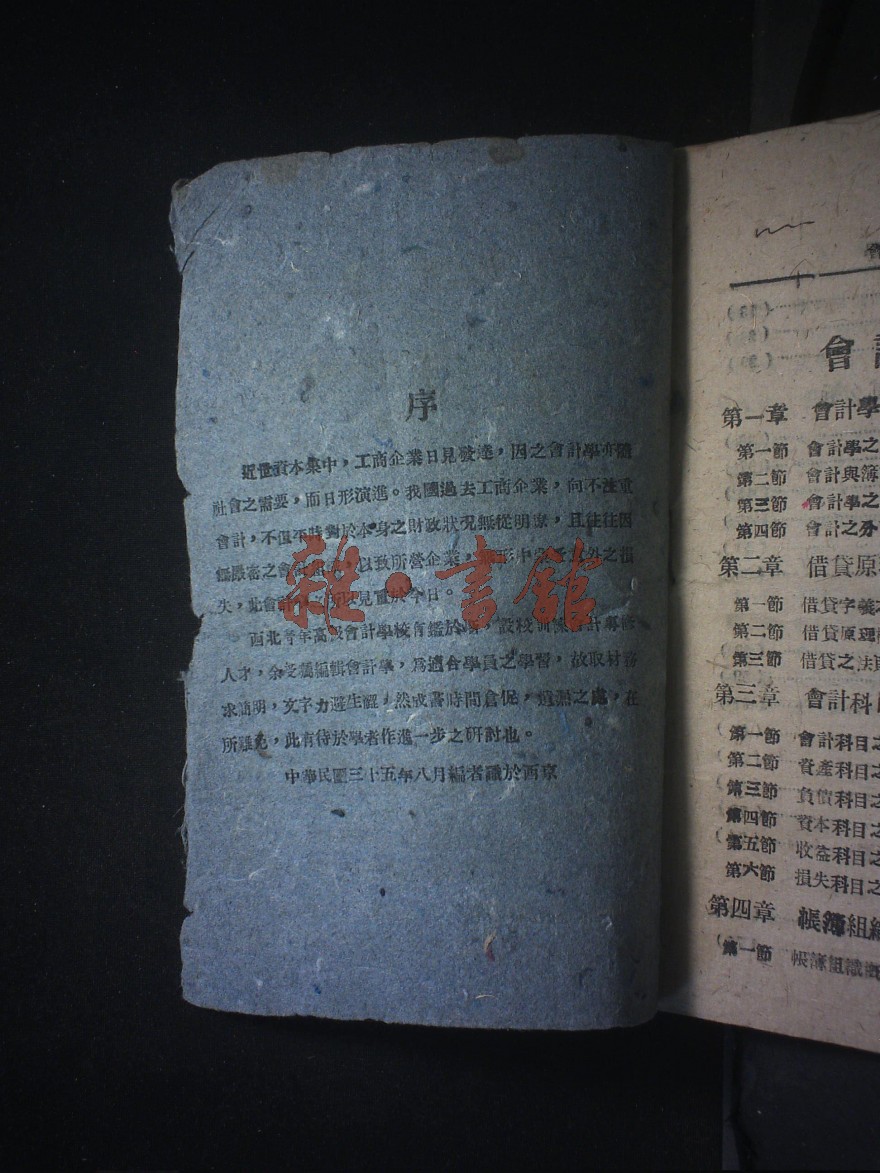 序
近世資本集中，工商企業日見發達，因之會計學亦隨
社會之需要，而日形演進。我國過去工商企業，向不注重
會計，不但平時對於本身之財政狀況無從明瞭，且往往因
無嚴密之會計，以致所營企業，形中意外之損
失，此會計所以見重於今日。
西北青年高級會計學校有鑑於，設校訓練會計專修
人才，余受囑編輯會計學，為適合學員之學習，故取材務
求簡明，文字力避生澀，然成書時間倉促，遺漏之處，在
所難免，此有待於學者作進一步之研討也。
中華民國三十五年八月編者識於西京
雜·書館
會計
第一章 會計學
第一節 會計學之
第二節 會計與簿
第三節 會計學之
第四節 會計之分
第二章 借貸原
第一節 借貸字義
第二節 借貸原理
第三節 借貸之法
第三章 會計科目
第一節 會計科目之
第二節 資產科目之
第三節 負債科目之
第四節 資本科目之
第五節 收益科目之
第六節 損失科目之
第四章 帳簿組織
第一節 帳簿組織